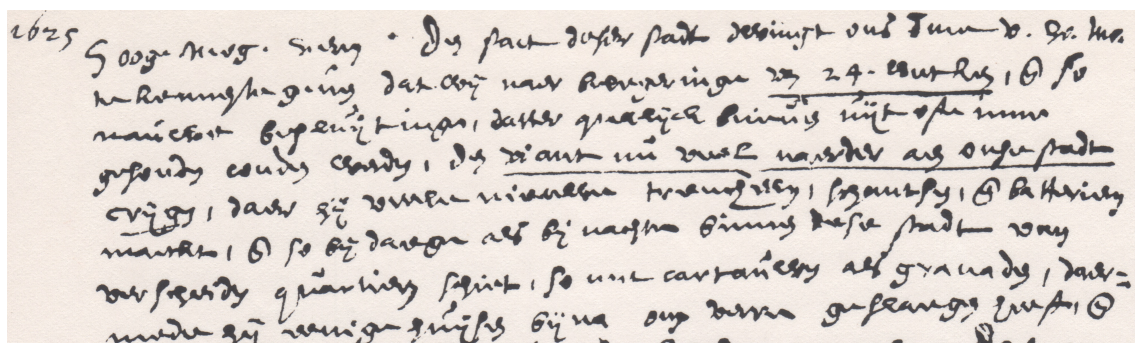 1625
Hooge Moog. heeren · De staet deser stadt dwingt ons Uwe v. Ho. Mo.
te kennen te geven dat wij naer belegeringe van 24. weeken, en so
nauwe besluijtinge, datter qualijck binnen uijt ofte inne
gehouden conden werden, den viant nu veel naerder aen onse stadt
crijgen, daer hij veele nieuwe trencheen, schantsen, en batterien
maeckt, en so bij daege als bij nachte binnen dese stadt van
verscheiden quartieren schiet, so met cartauwen als granaden, daer-
mede hij eenige huijsen bijna om verre geslaegen heeft, en